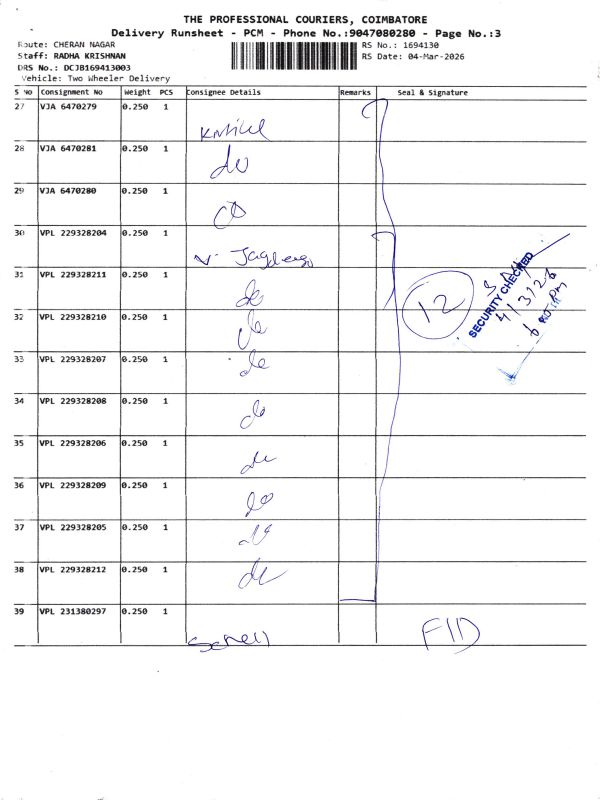 THE PROFESSIONAL COURIERS, COIMBATORE
Delivery Runsheet - PCM - Phone No.:9047080280 - Page No.:3
Route: CHERAN NAGAR
Staff: RADHA KRISHNAN
DRS No.: DCJB169413003
Vehicle: Two Wheeler Delivery
RS No.: 1694130
RS Date: 04-Mar-2026
S No Consignment No Weight PCS Consignee Details Remarks Seal & Signature
27 VJA 6470279 0.250 1
28 VJA 6470281 0.250 1
do
29 VJA 6470280 0.250 1
30 VPL 229328204 0.250 1
31 VPL 229328211 0.250 1
do
32 VPL 229328210 0.250 1
do
33 VPL 229328207 0.250 1
do
34 VPL 229328208 0.250 1
do
35 VPL 229328206 0.250 1
do
36 VPL 229328209 0.250 1
do
37 VPL 229328205 0.250 1
do
38 VPL 229328212 0.250 1
do
39 VPL 231380297 0.250 1
12
SECURITY CHECKED
4/3/26